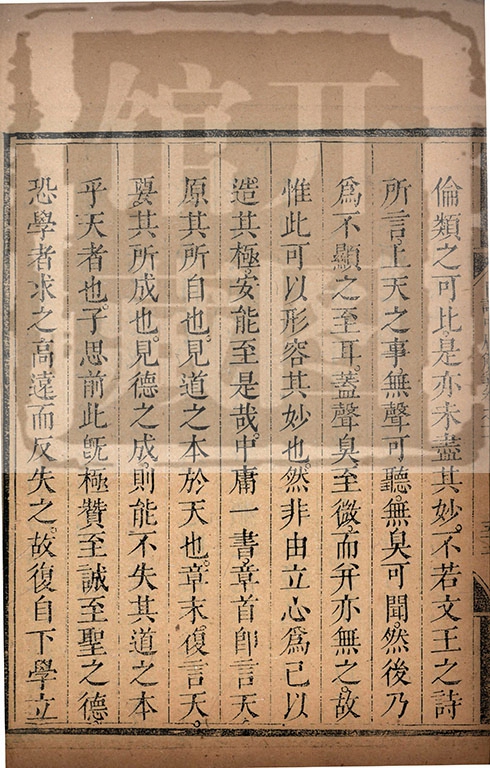 倫類之可比。是亦未盡其妙。不若文王之詩
所言。上天之事。無聲可聽。無臭可聞。然後乃
爲不顯之至耳。蓋聲臭至微。而幷亦無之。故
惟此可以形容其妙也。然非由立心爲己以
造其極。安能至是哉。中庸一書。章首卽言天。
原其所自也。見道之本於天也。章末復言天。
要其所成也。見德之成。則能不失其道之本
乎天者也。子思前此旣極贊至誠至聖之德
恐學者求之高遠而反失之。故復自下學立